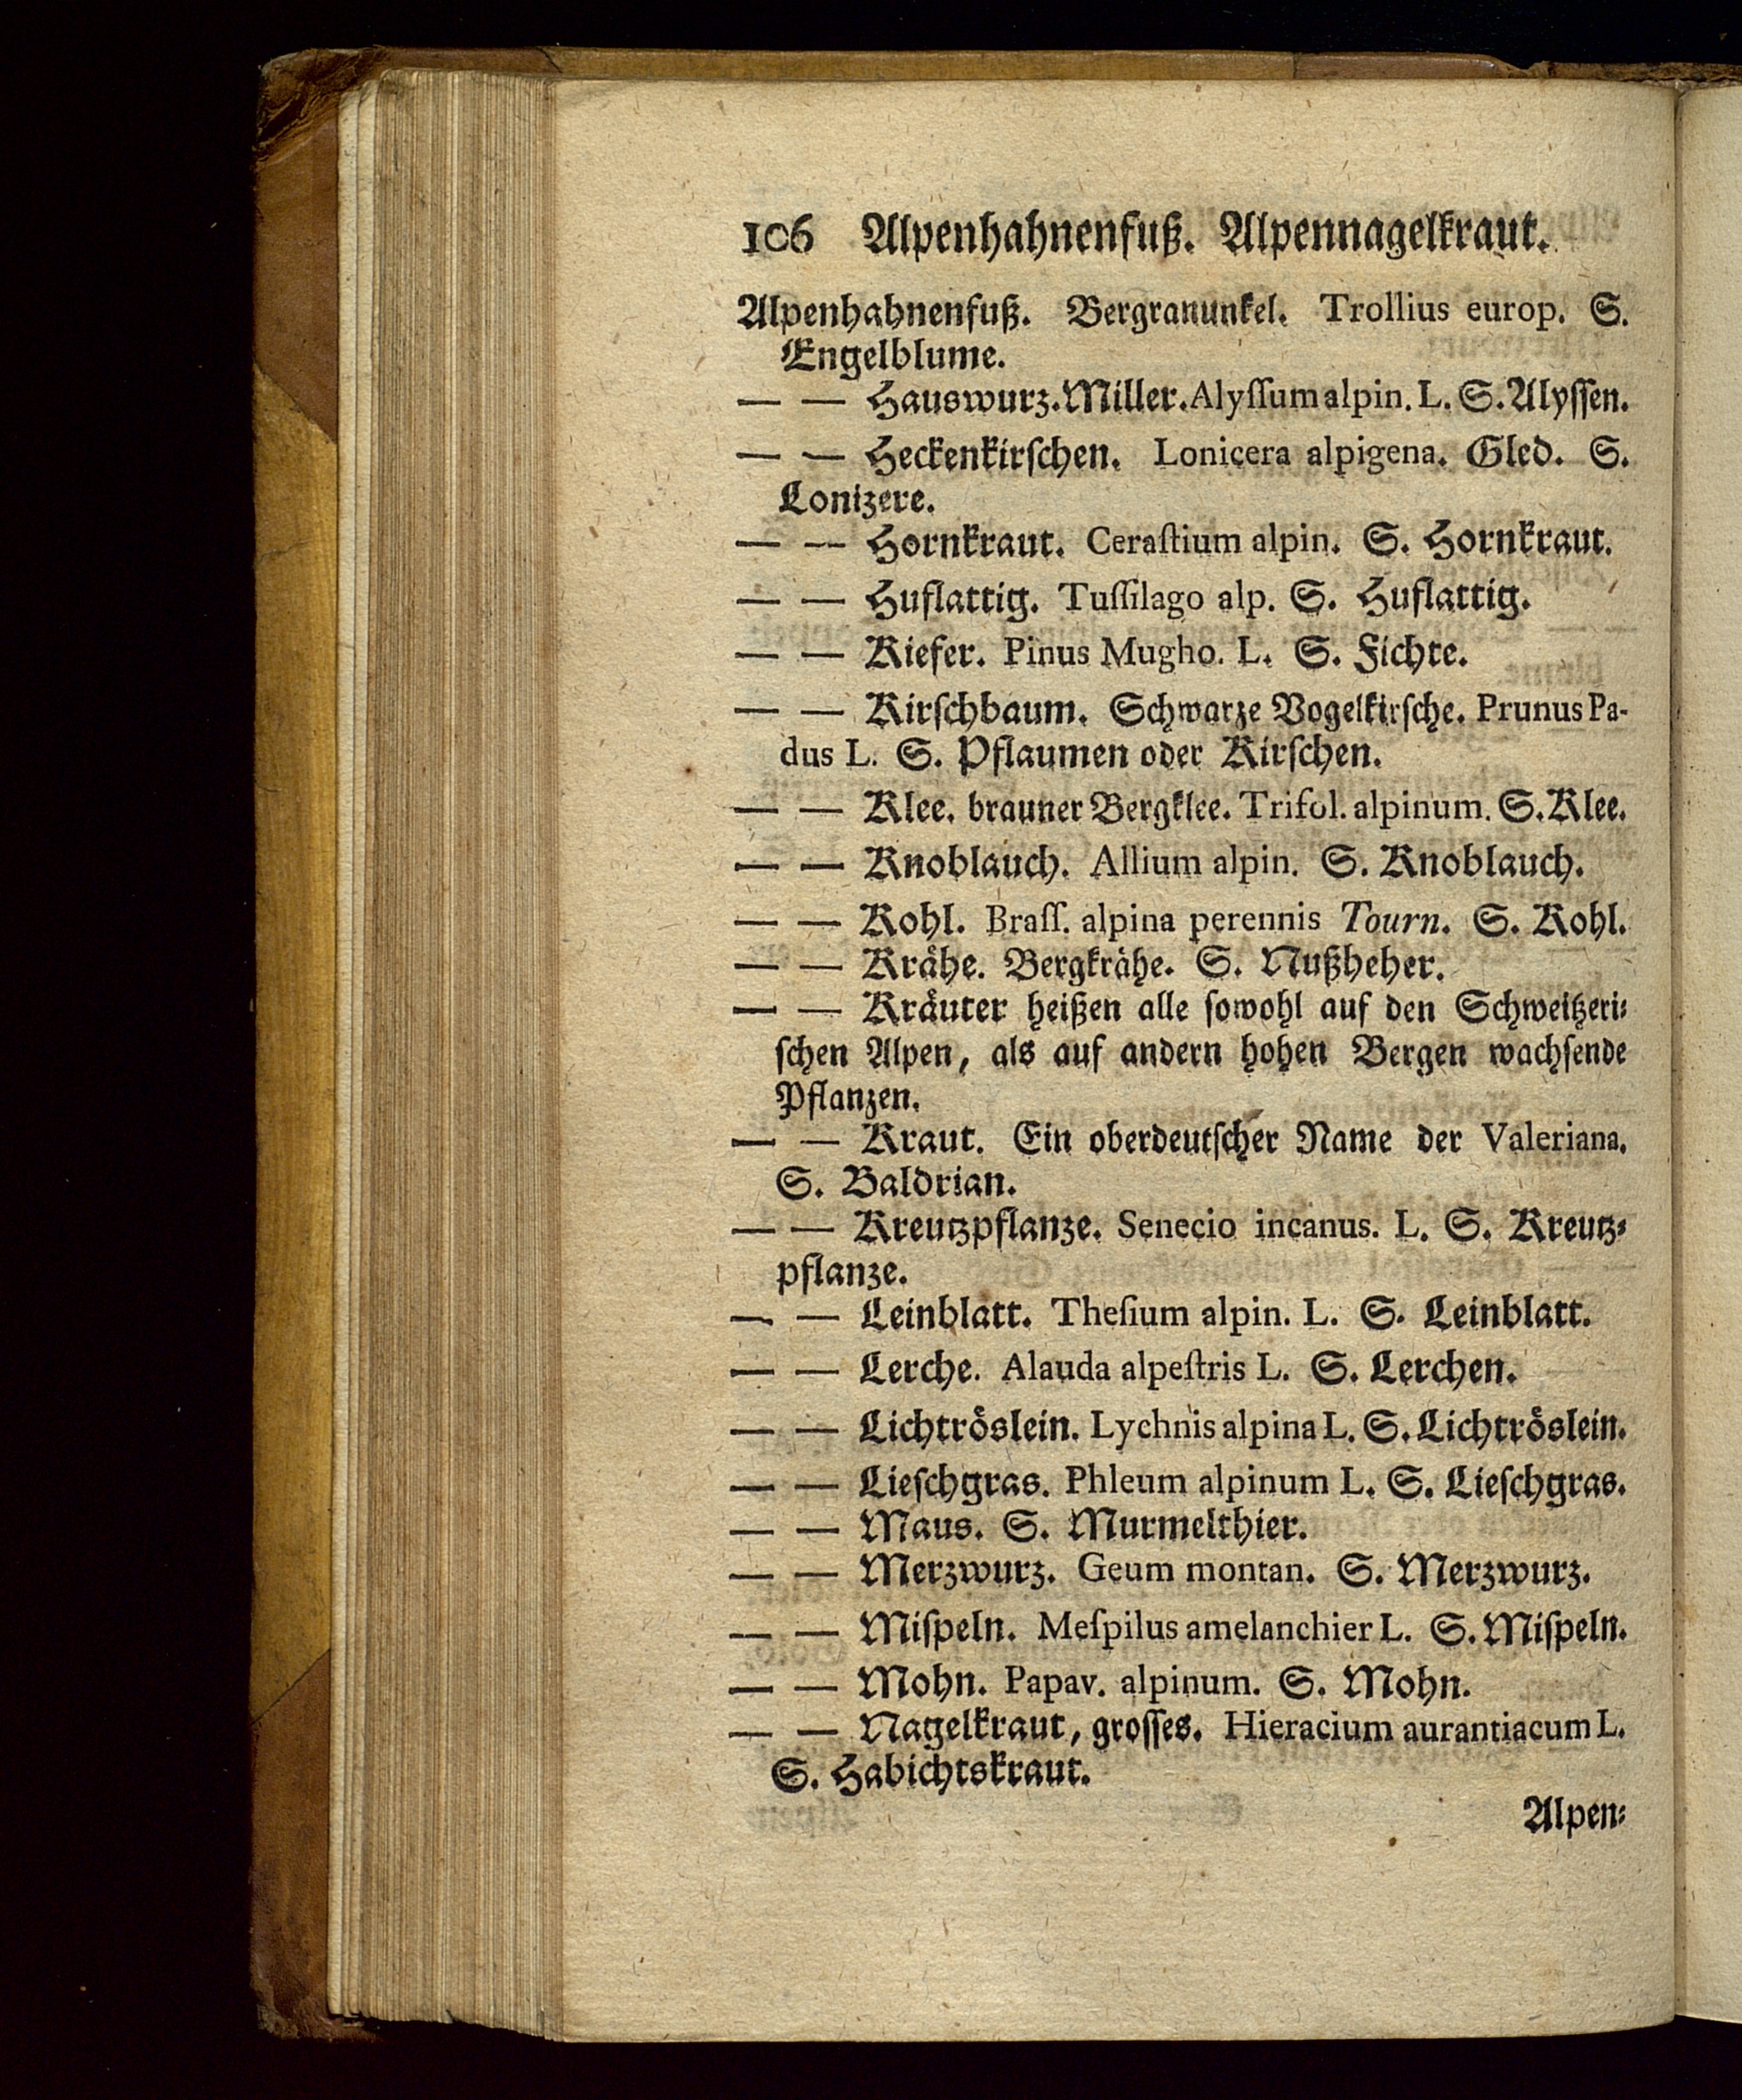 106 Alpenhahnenfuß. Alpennagelkraut.
Alpenhahnenfuß. Bergranunkel. Trollius europ. S.
Engelblume.
— — Hauswurz. Miller. Alyſſum alpin. L. S. Alyſſen.
— — Heckenkirſchen. Lonicera alpigena. Gled. S.
Lonizere.
— — Hornkraut. Ceraſtium alpin. S. Hornkraut.
— — Huflattig. Tuſſilago alp. S. Huflattig.
— — Kiefer. Pinus Mugho. L. S. Fichte.
— — Kirſchbaum. Schwarze Vogelkirſche. Prunus Pa-
dus L. S. Pflaumen oder Kirſchen.
— — Klee. brauner Bergklee. Trifol. alpinum. S. Klee.
— — Knoblauch. Allium alpin. S. Knoblauch.
— — Kohl. Braſſ. alpina perennis Tourn. S. Kohl.
— — Krähe. Bergkrähe. S. Nußheher.
— — Kräuter heißen alle ſowohl auf den Schweitzeri-
ſchen Alpen, als auf andern hohen Bergen wachſende
Pflanzen.
— — Kraut. Ein oberdeutſcher Name der Valeriana.
S. Baldrian.
— — Kreutzpflanze. Senecio incanus. L. S. Kreutz-
pflanze.
— — Leinblatt. Theſium alpin. L. S. Leinblatt.
— — Lerche. Alauda alpeſtris L. S. Lerchen.
— — Lichtröslein. Lychnis alpina L. S. Lichtröslein.
— — Lieſchgras. Phleum alpinum L. S. Lieſchgras.
— — Maus. S. Murmelthier.
— — Merzwurz. Geum montan. S. Merzwurz.
— — Miſpeln. Meſpilus amelanchier L. S. Miſpeln.
— — Mohn. Papav. alpinum. S. Mohn.
— — Nagelkraut, groſſes. Hieracium aurantiacum L.
S. Habichtskraut.
Alpen-